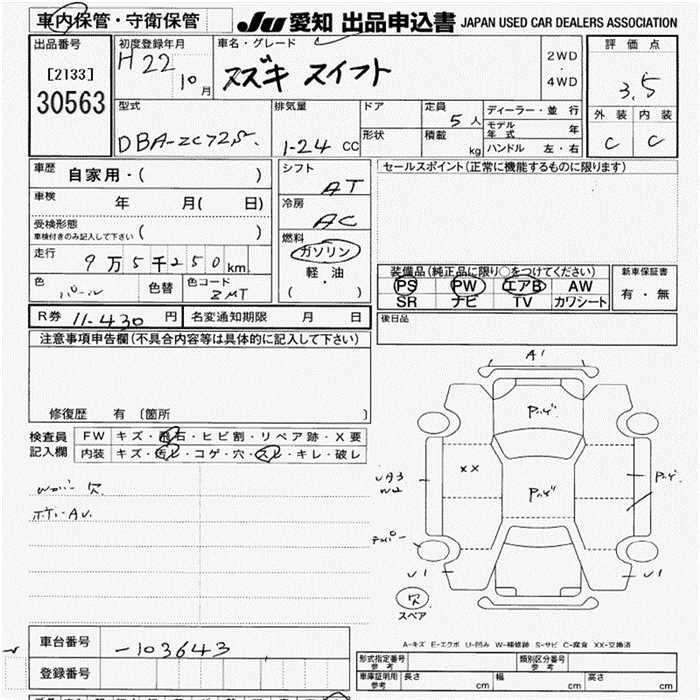 車内保管・守衛保管
JU 愛知 出品申込書 JAPAN USED CAR DEALERS ASSOCIATION
出品番号
[2133]
30563
初度登録年月
H22 10月
車名・グレード
スズキ スイフト
2WD
・
4WD
評価点
3.5
外装 内装
C C
型式
DBA-ZC72S
排気量
1-24 CC
ドア
形状
定員 5人
積載 kg
ディーラー・並行
モデル年式 年
ハンドル 左・右
車歴 自家用・( )
車検 年 月( 日)
受検形態
車検付きのみ記入して下さい ( )
走行 9万5千250km
色 パール 色替 色コード ZMT
シフト
AT
冷房
AC
燃料
ガソリン
軽・油
( )
セールスポイント(正常に機能するものに限ります)
装備品(純正品に限り○をつけてください)
PS PW エアB AW
SR ナビ TV カワシート
新車保証書
有・無
R券 11-430円 名変通知期限 月 日
後日品
注意事項申告欄(不具合内容等は具体的に記入して下さい)
修復歴 有 〔箇所 〕
検査員
記入欄
FW キズ・飛石・ヒビ割・リペア跡・X要
内装 キズ・汚レ・コゲ・穴・スレ・キレ・破レ
欠
A1
××
UA3
W2
U1
U1
欠
スペア
A-キズ E-エクボ U-凹み W-補修跡 S-サビ C-腐食 XX-交換済
車台番号 -103643
登録番号
形式指定番号
参考
類別区分番号
参考
車庫証明用
参考
長さ cm 幅 cm 高さ cm